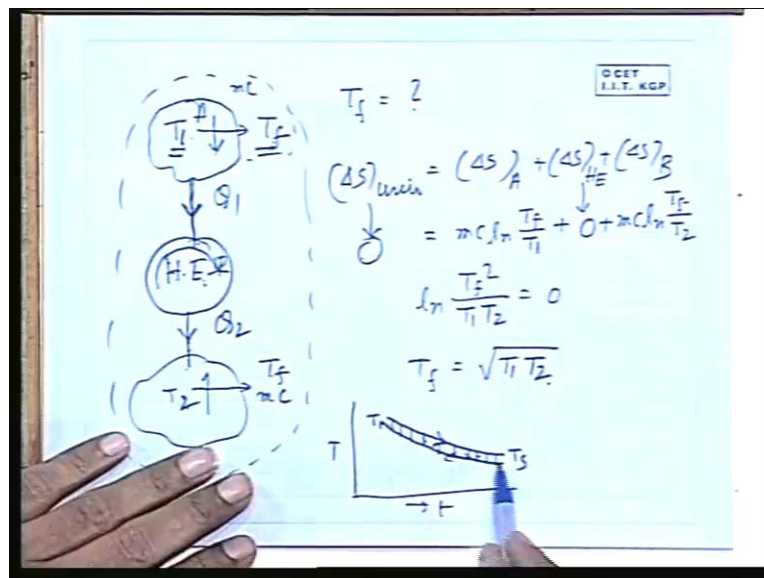 © CET
I.I.T. KGP
mc
A
T₁ → T_f
Q₁
H.E.
Q₂
T₂ → T_f
mc
T_f = ?
(ΔS)univ = (ΔS)_A + (ΔS)_HE + (ΔS)_B
0 = mc ln T_f/T₁ + 0 + mc ln T_f/T₂
ln T_f²/T₁T₂ = 0
T_f = √T₁T₂
T
T₁
T_f
→ t